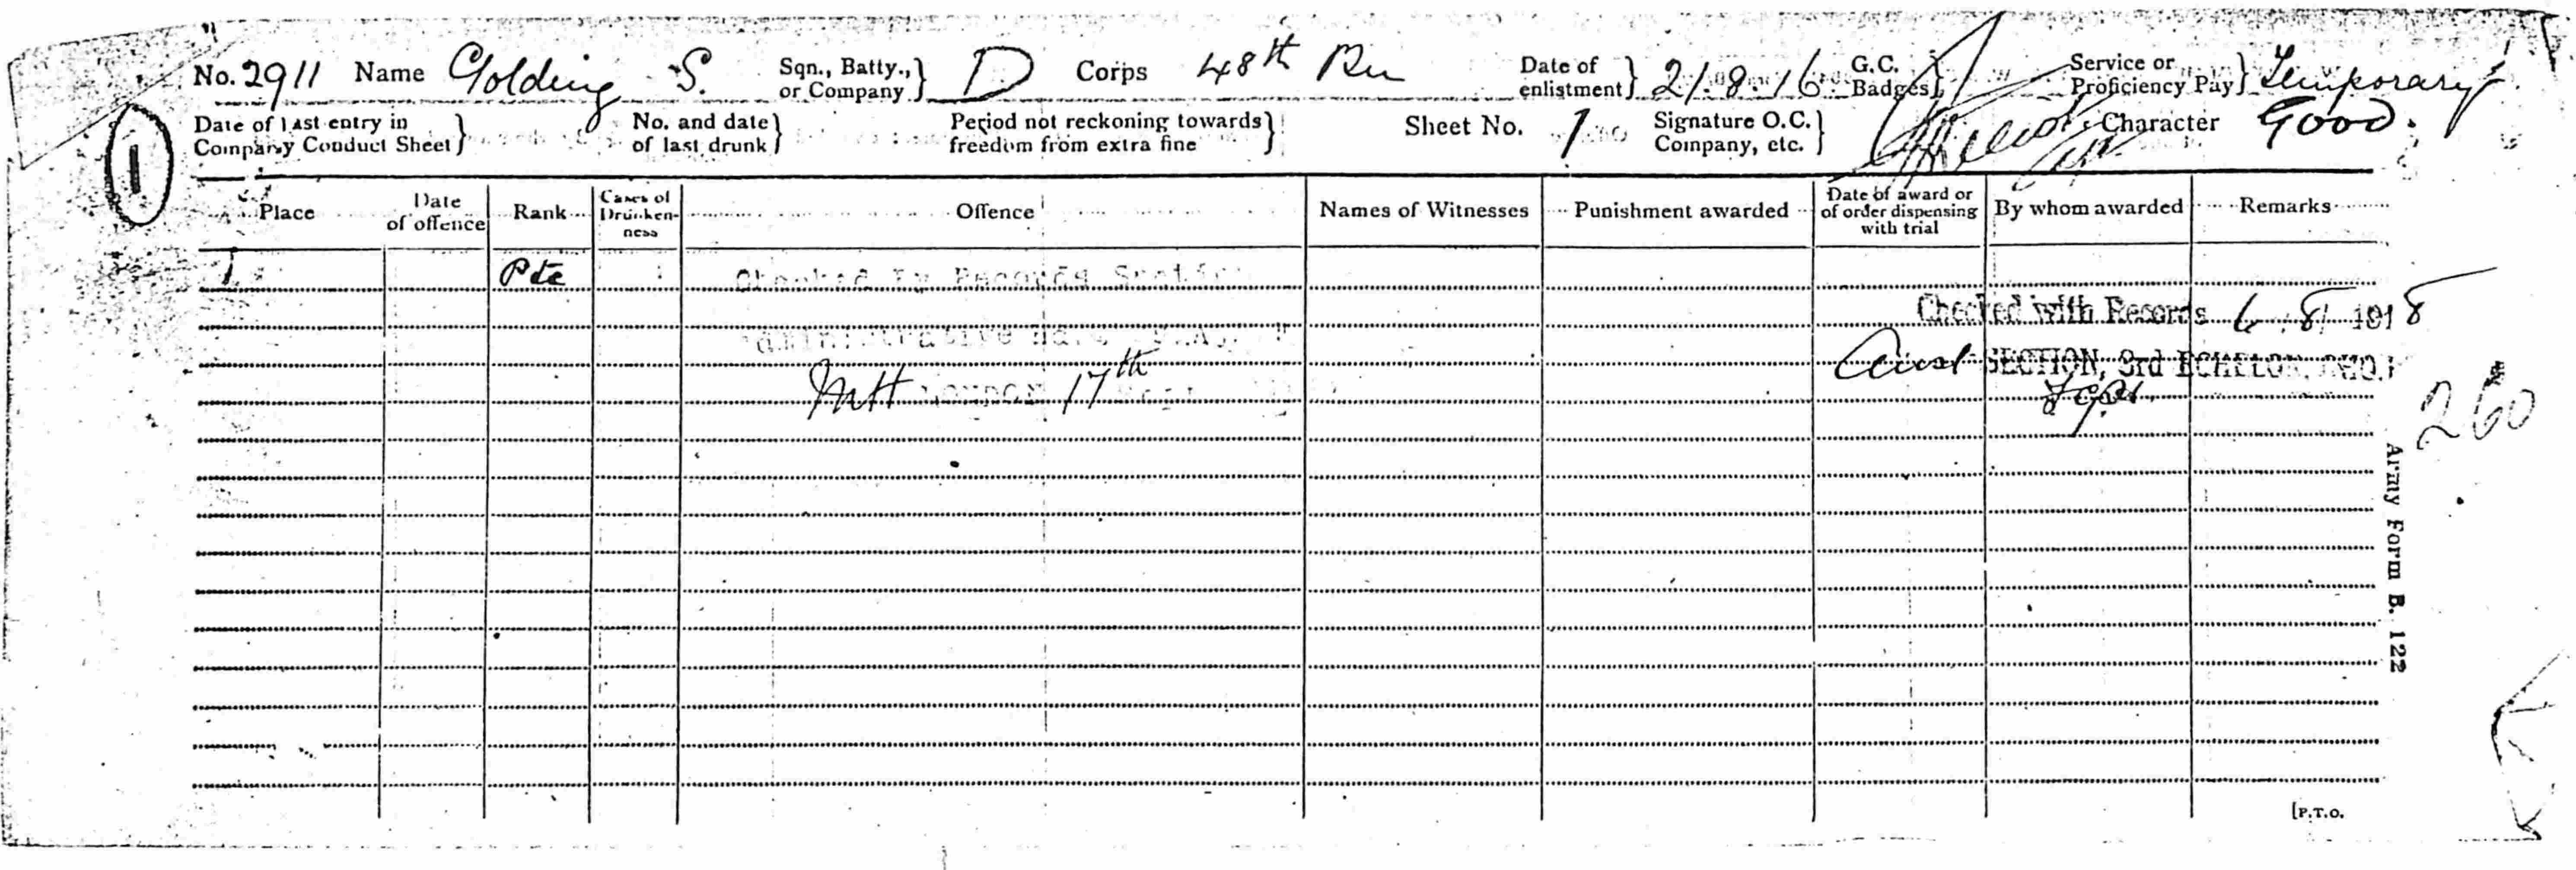 No. 2911 Name Golding S. Sqn., Batty., or Company } D Corps 48th Bn Date of enlistment } 21.8.16 G.C. Badges } Service or Proficiency Pay } Temporary
Date of last entry in Company Conduct Sheet } No. and date of last drunk } Period not reckoning towards freedom from extra fine } Sheet No. 1 Signature O.C. Company, etc. } Character Good.
1
Place Date of offence Rank Cases of Drunkenness Offence Names of Witnesses Punishment awarded Date of award or of order dispensing with trial By whom awarded Remarks
Pte Checked by Records Section
Checked with Records 6 8 1918
Administrative
Aust SECTION, 3rd ECHELON, G.H.Q.
LONDON 17th
260
Army Form B. 122
[P.T.O.